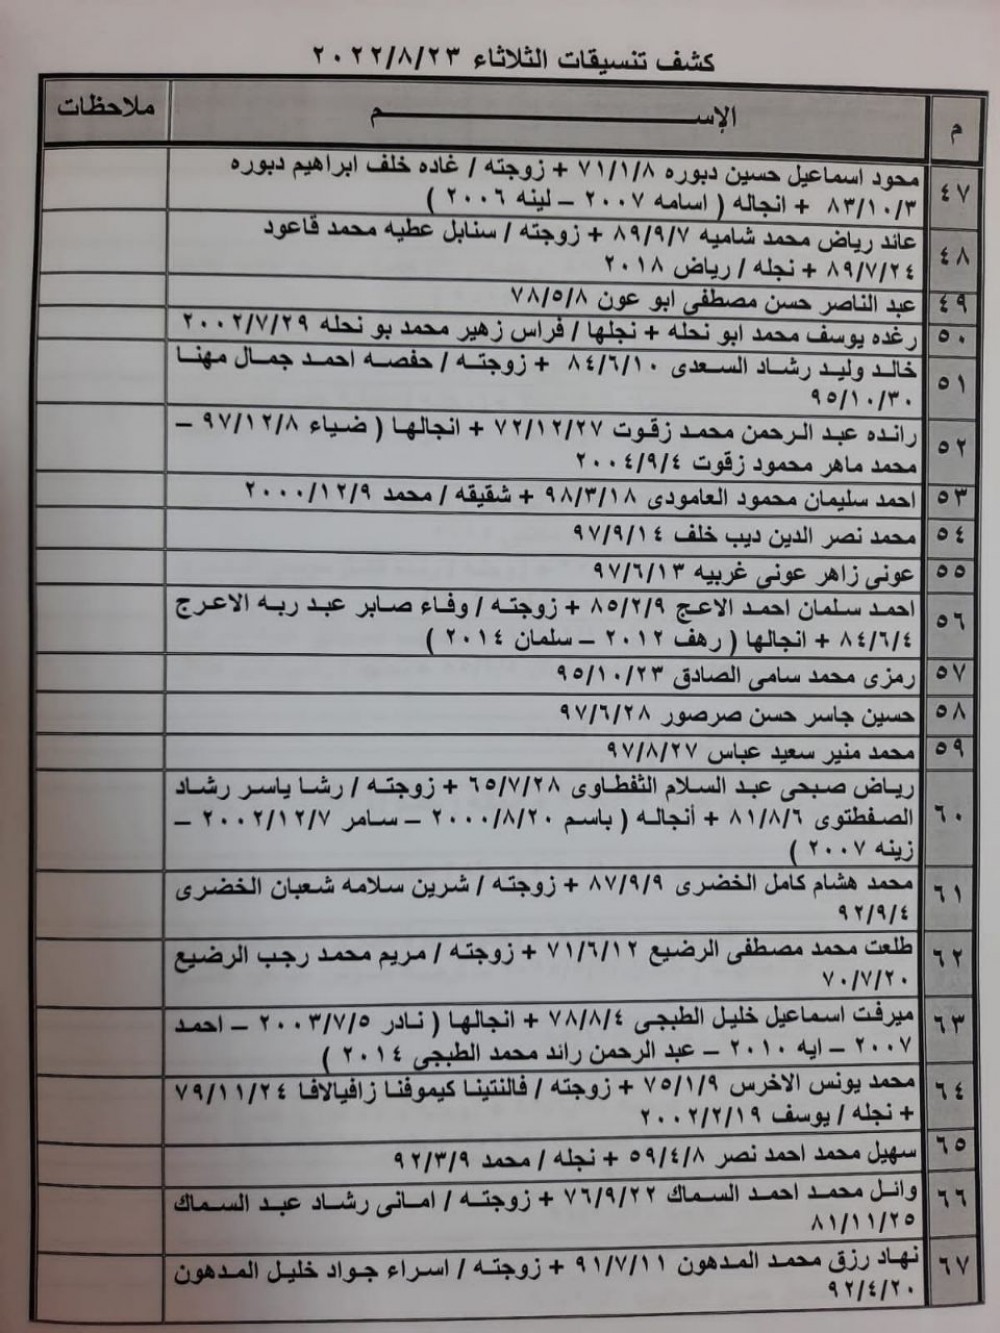 كشف تنسيقات الثلاثاء ٢٠٢٢/٨/٢٣
م الإســـــم ملاحظات
٤٧ محود اسماعيل حسين دبوره ٧١/١/٨ + زوجته / غاده خلف ابراهيم دبوره
٨٣/١٠/٣ + انجاله ( اسامه ٢٠٠٧ – لينه ٢٠٠٦ )
٤٨ عائد رياض محمد شاميه ٨٩/٩/٧ + زوجته / سنابل عطيه محمد قاعود
٨٩/٧/٢٤ + نجله / رياض ٢٠١٨
٤٩ عبد الناصر حسن مصطفى ابو عون ٧٨/٥/٨
٥٠ رغده يوسف محمد ابو نحله + نجلها / فراس زهير محمد بو نحله ٢٠٠٢/٧/٢٩
٥١ خالد وليد رشاد السعدى ٨٤/٦/١٠ + زوجته / حفصه احمد جمال مهنا
٩٥/١٠/٣٠
٥٢ رانده عبد الرحمن محمد زقوت ٧٢/١٢/٢٧ + انجالها ( ضياء ٩٧/١٢/٨ –
محمد ماهر محمود زقوت ٢٠٠٤/٩/٤
٥٣ احمد سليمان محمود العامودى ٩٨/٣/١٨ + شقيقه / محمد ٢٠٠٠/١٢/٩
٥٤ محمد نصر الدين ديب خلف ٩٧/٩/١٤
٥٥ عونى زاهر عونى غربيه ٩٧/٦/١٣
٥٦ احمد سلمان احمد الاعج ٨٥/٢/٩ + زوجته / وفاء صابر عبد ربه الاعرج
٨٤/٦/٤ + انجالها ( رهف ٢٠١٢ – سلمان ٢٠١٤ )
٥٧ رمزى محمد سامى الصادق ٩٥/١٠/٢٣
٥٨ حسين جاسر حسن صرصور ٩٧/٦/٢٨
٥٩ محمد منير سعيد عباس ٩٧/٨/٢٧
٦٠ رياض صبحى عبد السلام الثفطاوى ٦٥/٧/٢٨ + زوجته / رشا ياسر رشاد
الصفطتوى ٨١/٨/٦ + أنجاله ( باسم ٢٠٠٠/٨/٢٠ – سامر ٢٠٠٢/١٢/٧ –
زينه ٢٠٠٧ )
٦١ محمد هشام كامل الخضرى ٨٧/٩/٩ + زوجته / شرين سلامه شعبان الخضرى
٩٢/٩/٤
٦٢ طلعت محمد مصطفى الرضيع ٧١/٦/١٢ + زوجته / مريم محمد رجب الرضيع
٧٠/٧/٢٠
٦٣ ميرفت اسماعيل خليل الطبجى ٧٨/٨/٤ + انجالها ( نادر ٢٠٠٣/٧/٥ – احمد
٢٠٠٧ – ايه ٢٠١٠ – عبد الرحمن رائد محمد الطبجى ٢٠١٤ )
٦٤ محمد يونس الاخرس ٧٥/١/٩ + زوجته / فالنتينا كيموفنا زافيالافا ٧٩/١١/٢٤
+ نجله / يوسف ٢٠٠٢/٢/١٩
٦٥ سهيل محمد احمد نصر ٥٩/٤/٨ + نجله / محمد ٩٢/٣/٩
٦٦ وائل محمد احمد السماك ٧٦/٩/٢٢ + زوجته / امانى رشاد عبد السماك
٨١/١١/٢٥
٦٧ نهاد رزق محمد المدهون ٩١/٧/١١ + زوجته / اسراء جواد خليل المدهون
٩٢/٤/٢٠